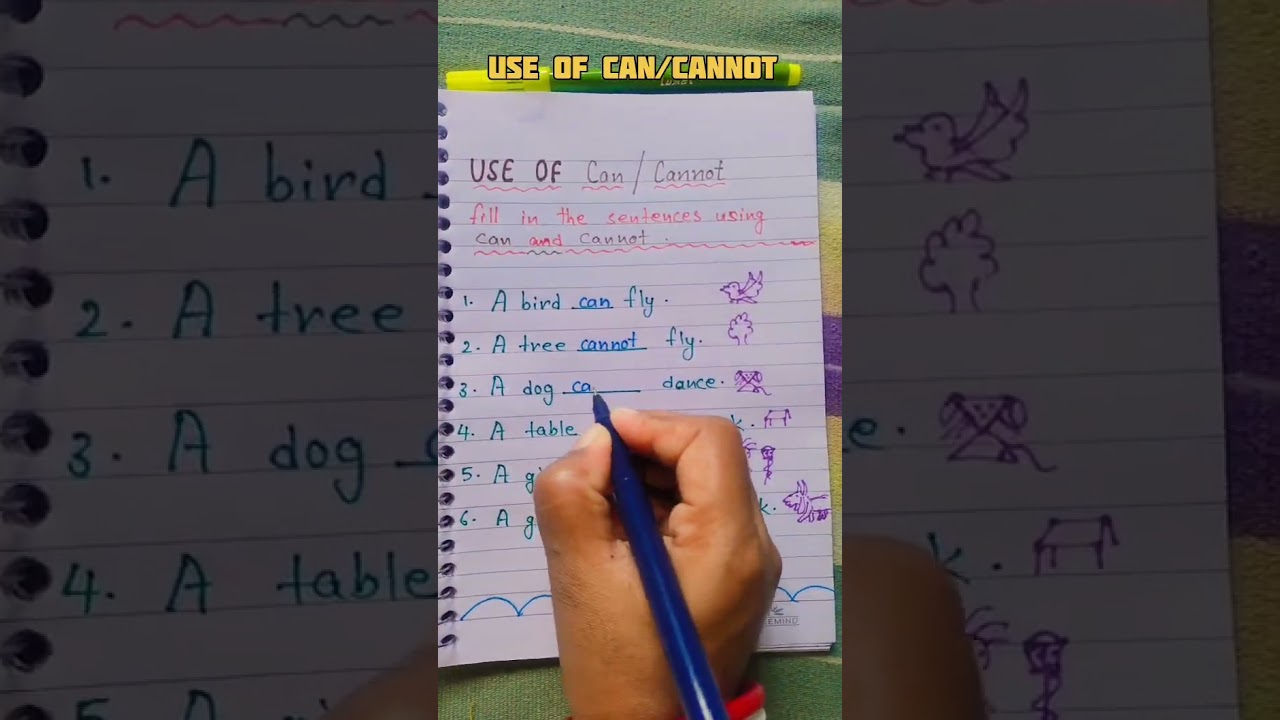 USE OF CAN/CANNOT
USE OF Can / Cannot
fill in the sentences using
can and cannot.
1. A bird can fly.
2. A tree cannot fly.
3. A dog ca dance.
4. A table k.
5. A g
6. A g k.
1. A bird
2. A tree
3. A dog e.
4. A table k.
5